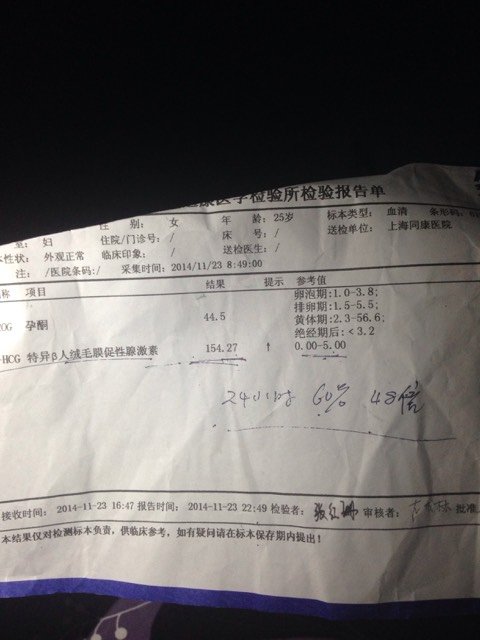 医学检验所检验报告单
性 别: 女 年 龄: 25岁 标本类型: 血清 条形码:
妇 住院/门诊号: / 床 号: / 送检单位: 上海同康医院
性状: 外观正常 临床印象: / 送检医生: /
注: /医院条码:/ 采集时间: 2014/11/23 8:49:00
称 项目 结果 提示 参考值
卵泡期:1.0-3.8;
排卵期:1.5-5.5;
OG 孕酮 44.5 黄体期:2.3-56.6;
绝经期后:<3.2
-HCG 特异β人绒毛膜促性腺激素 154.27 ↑ 0.00-5.00
24小时 60% 48倍
接收时间: 2014-11-23 16:47 报告时间: 2014-11-23 22:49 检验者: 审核者: 批准
本结果仅对检测标本负责，供临床参考，如有疑问请在标本保存期内提出！